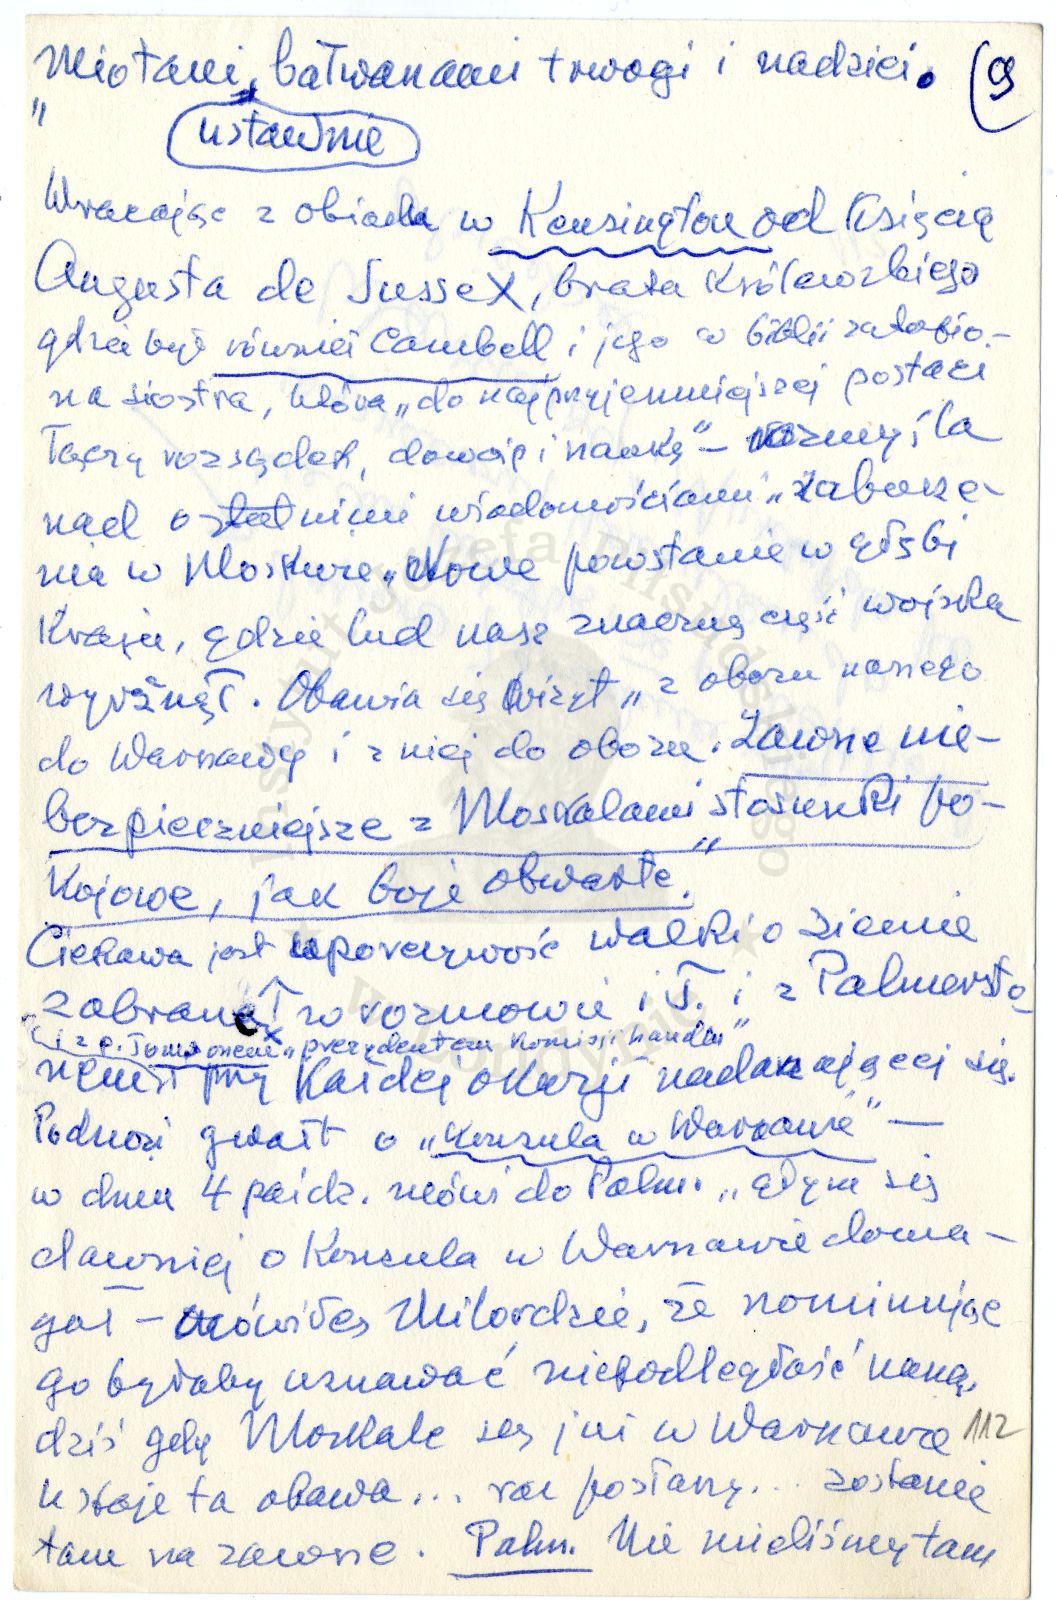 miotani, bałwanami trwogi i nadziei. (9
" ustawnie
Wracając z obiadu w Kensington od Księcia
Augusta de Sussex, brata Królewskiego
gdzie był również Cambell i jego w biblii zatopio-
na siostra, która „do najprzyjemniejszej postaci
łączy rozsądek, dowcip i naukę" – rozmyśla
nad ostatnimi wiadomościami „zaburze-
nia w Moskwie, „Nowe powstanie w głębi
Kraju, gdzie lud nasz znaczną część wojska
wyrżnął. Obawia się wizyt „z obozu naszego
do Warszawy i z niej do obozu. Zawsze nie-
bezpieczniejsze z Moskalami stosunki po-
kojowe, jak boje otwarte."
Ciekawa jest uporczywość walki o ziemie
zabrane w rozmowie i T. i z Palmersto-
i z p. Tomsonem „prezydentem Komisji handlu"
nem przy każdej okazji nadarzającej się.
Podnosi gwałt o „Konsula w Warszawie" —
w dniu 4 paźdz. mówi do Palm. „gdym się
dawniej o Konsula w Warszawie doma-
gał – mówiłeś Milordzie, że nominując
go byłoby uznawać niepodległość naszą,
dziś gdy Moskale są już w Warszawie 112
ustaje ta obawa... raz posłany... zostanie
tam na zawsze. Palm. Nie mieliśmy tam
Instytut Józefa Piłsudskiego
w Londynie